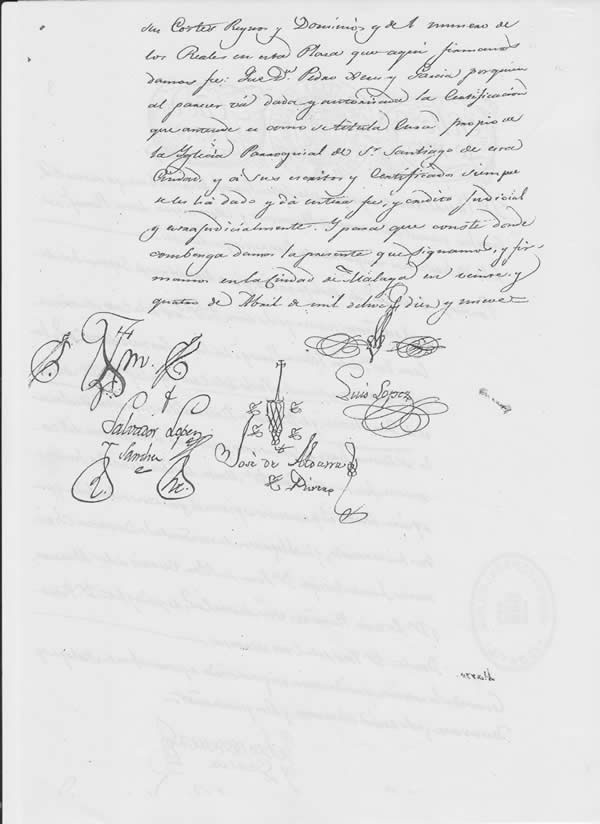 sus Cortes Reynos y Dominios y del numero de
los Reales en esta Plaza que aqui firmamos
damos fee: Que Dn. Pedro Xeres y Garcia por quien
al parecer vá dada y autorisada la Certificacion
que antecede es como se titula Cura propio de
la Yglesia Parroquial de Sr. Santiago de esta
Ciudad, y á sus escritos y Certificados siempre
se les há dado y dá entera fee, y credito Judicial
y extrajudicialmente. Y para que conste donde
combenga damos la presente que signamos, y fir-
mamos en la Ciudad de Malaga en veinte, y
quatro de Abril de mil ochos. dies y nueve
Salvador Lopez
Sanchez
Luis Lopez
José de